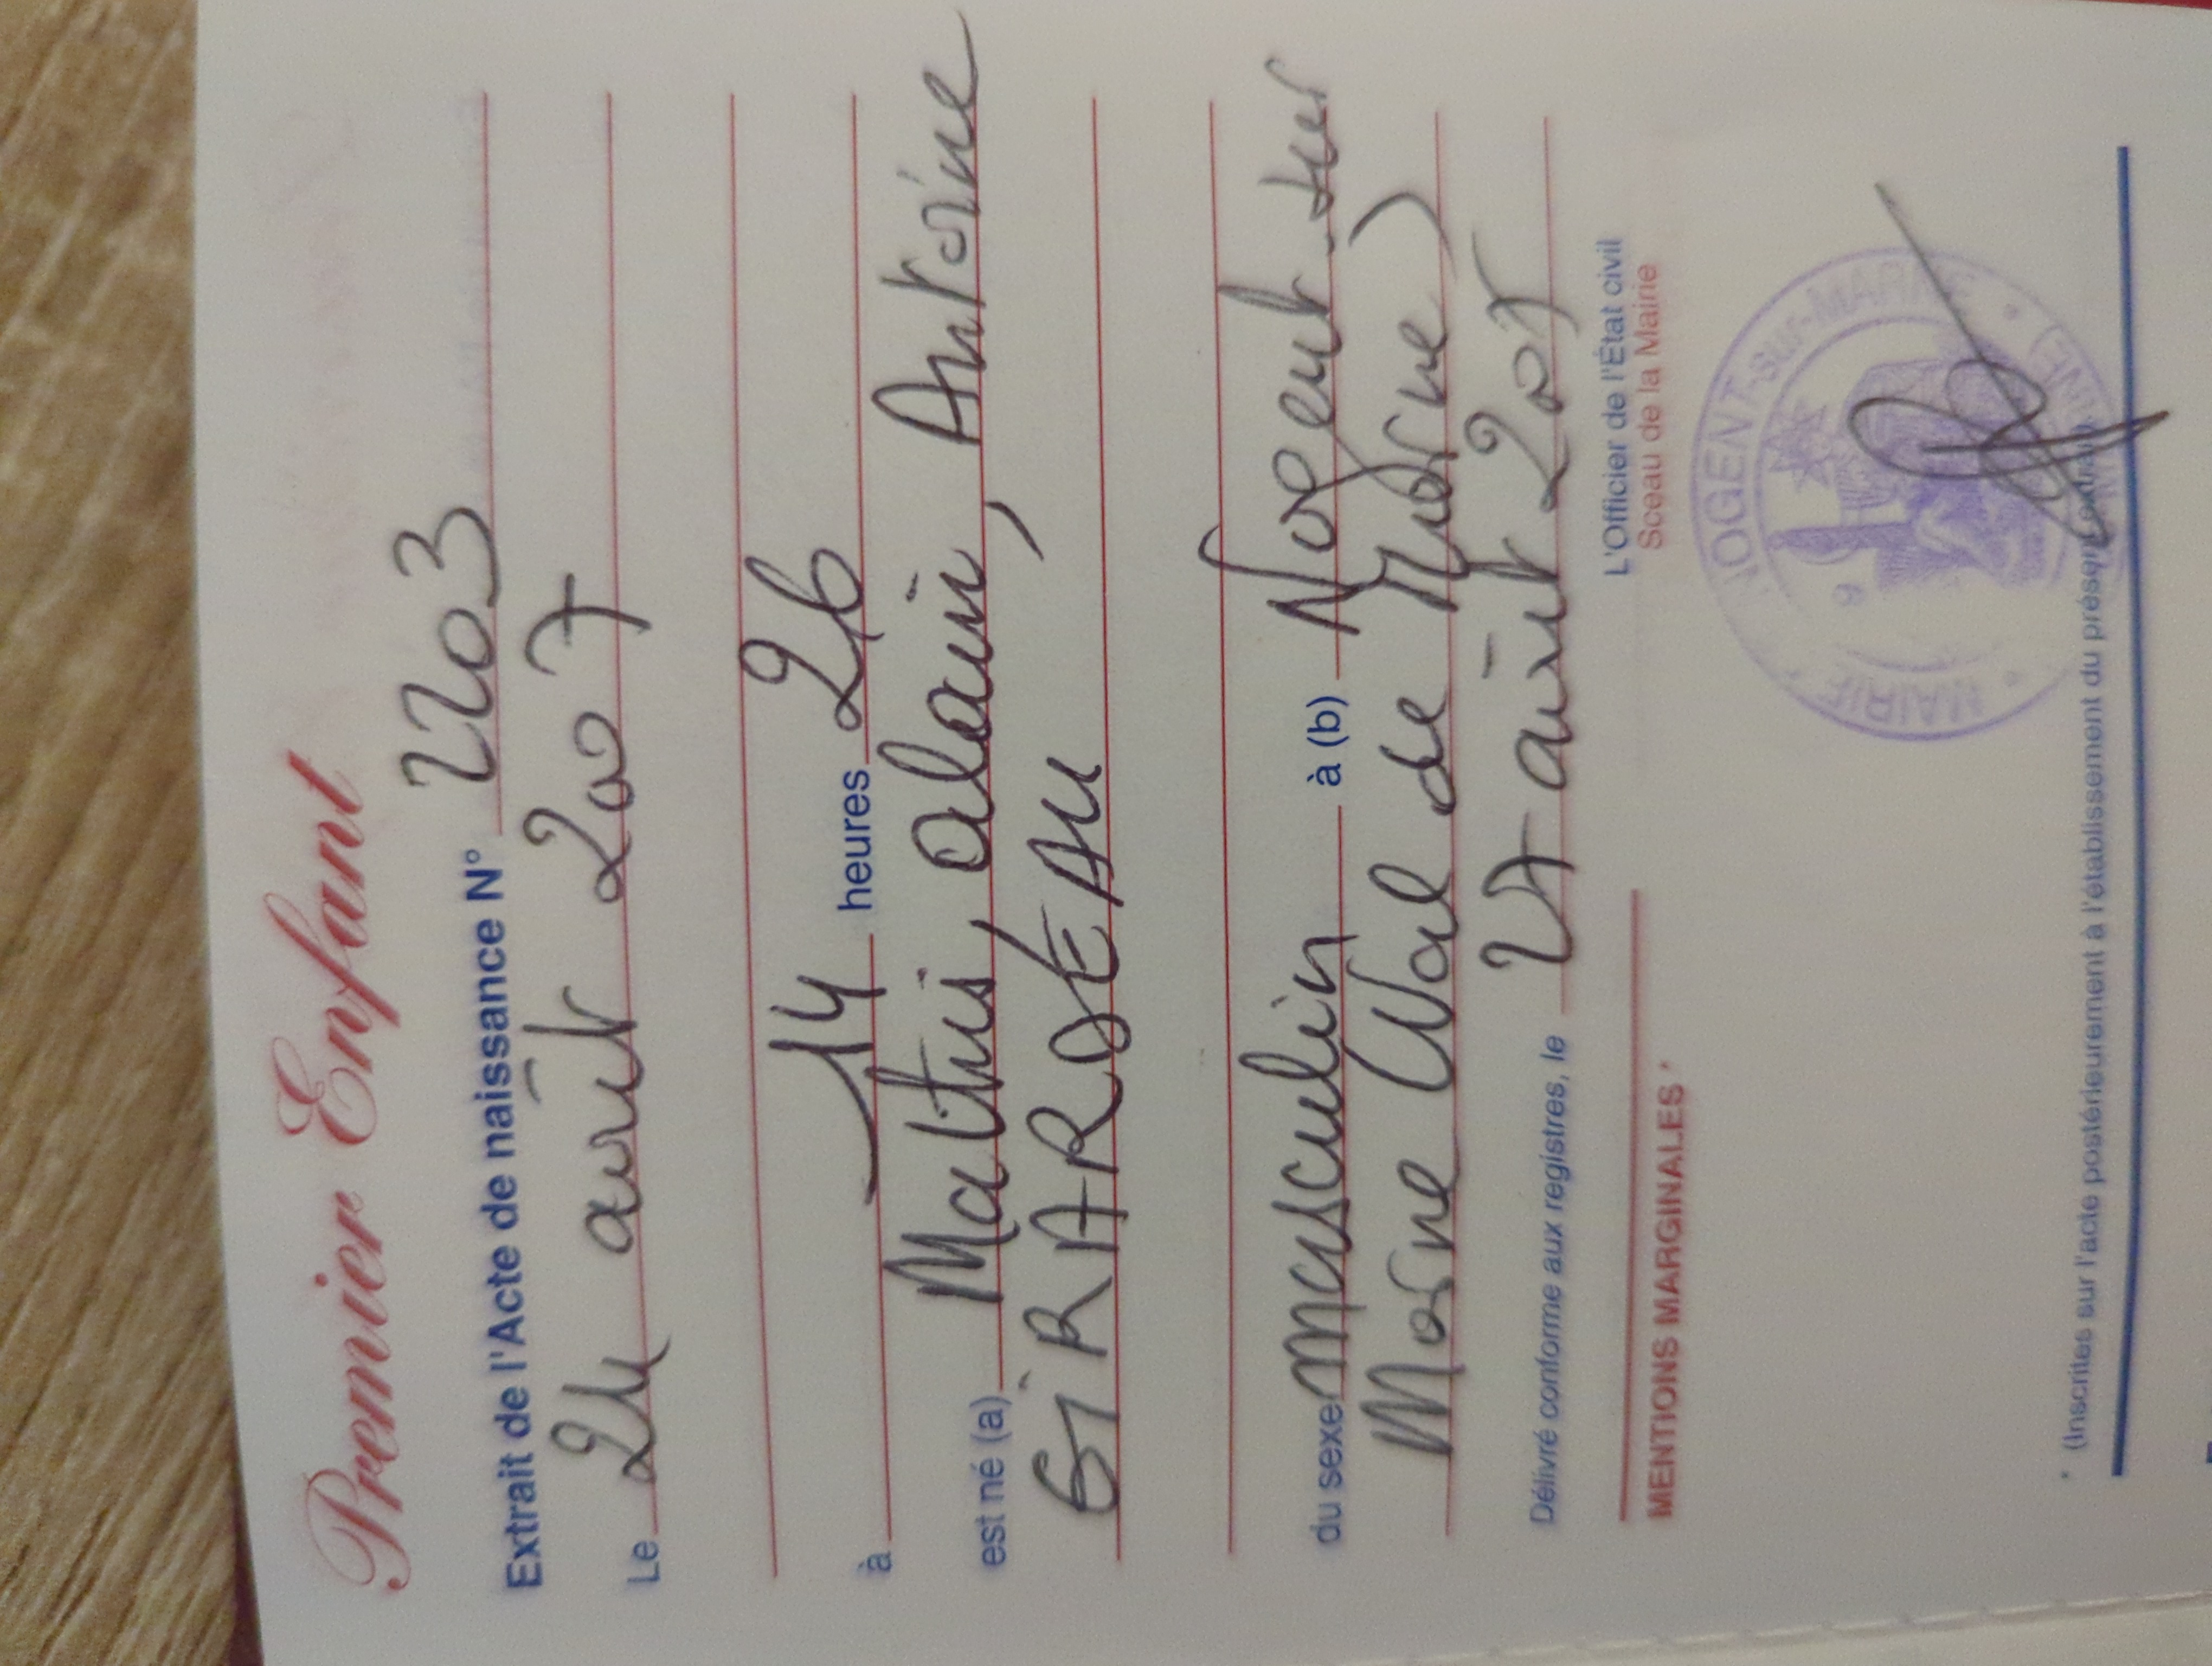 Premier Enfant
Extrait de l'Acte de naissance N° 2203
Le 24 août 2007
à 14 heures 26
est né (a) Mathis, Alain, Antoine
GIRARDEAU
du sexe masculin à (b) Nogent-sur
Marne (Val de Marne)
Délivré conforme aux registres, le 27 août 2007
L'Officier de l'État civil
Sceau de la Mairie
MENTIONS MARGINALES *
MAIRIE NOGENT-sur-MARNE
* (Inscrites sur l'acte postérieurement à l'établissement du présent extrait)